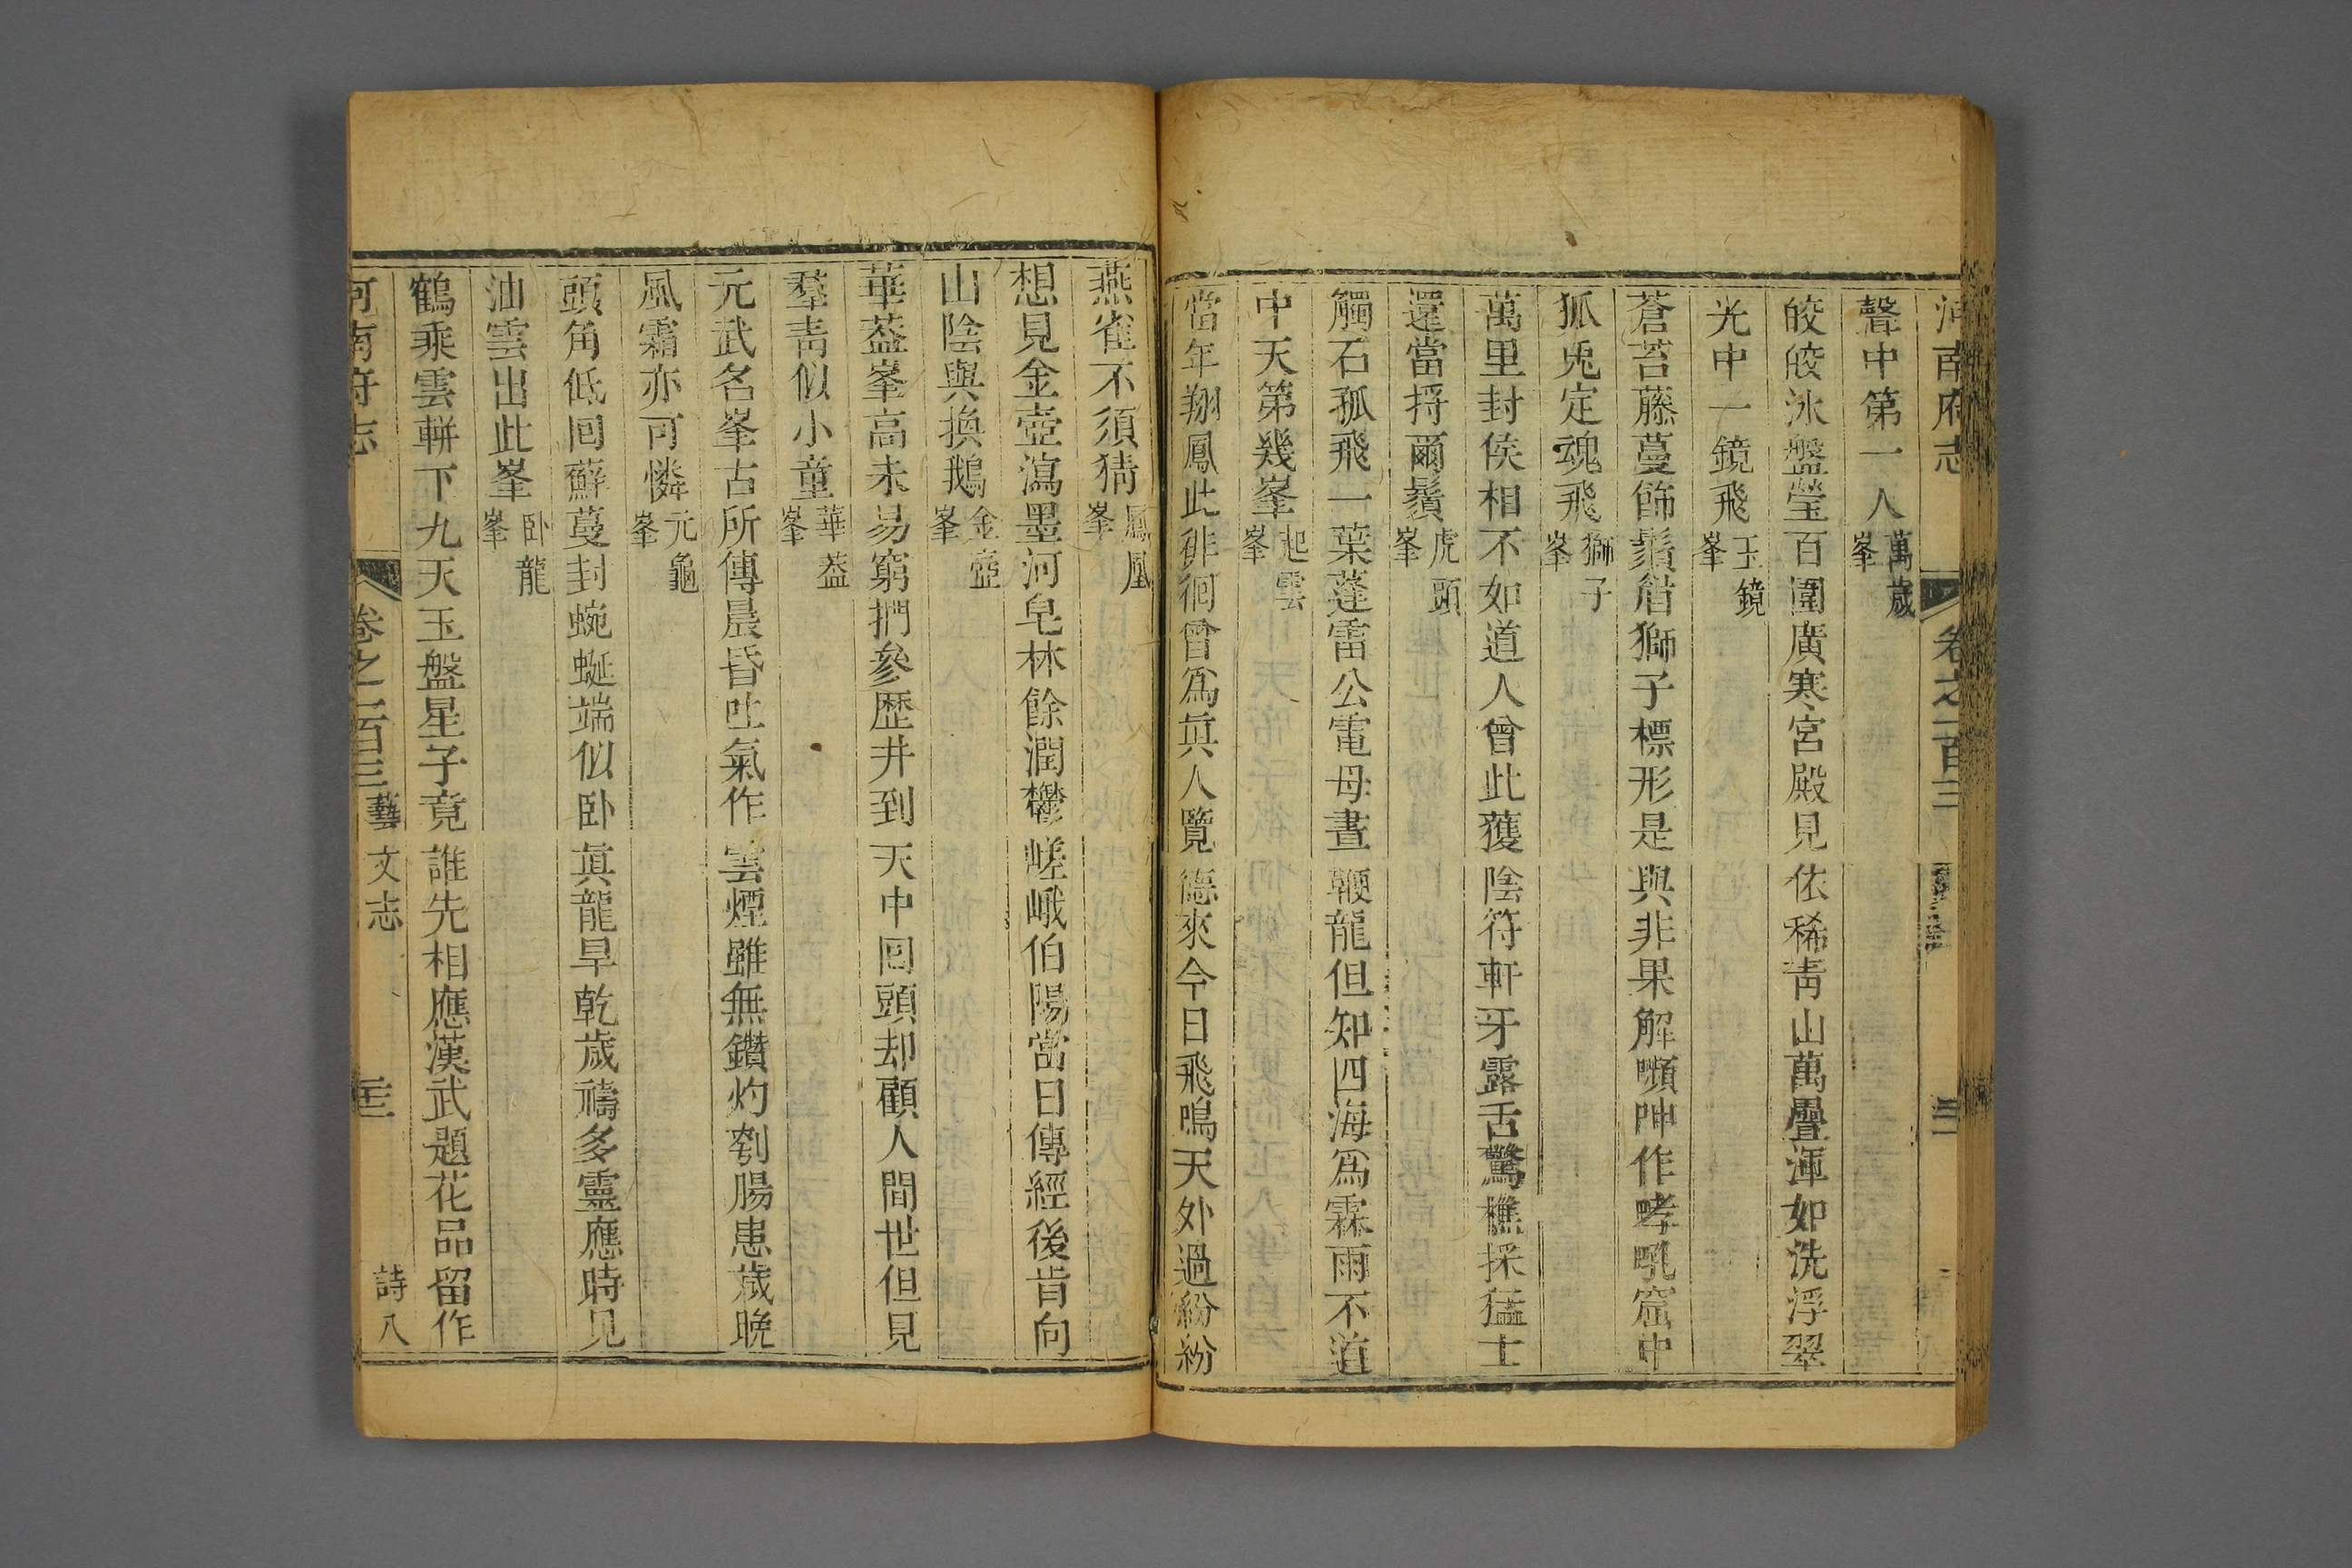 河南府志　卷之一百三
聲中第一人萬歲峯
皎皎冰盤瑩百圍廣寒宮殿見依稀靑山萬疊渾如洗浮翠
光中一鏡飛玉鏡峯
蒼苔藤蔓飾鬚眉獅子標形是與非果解嚬呻作哮吼窟中
狐兎定魂飛獅子峯
萬里封侯相不如道人曾此獲陰符軒牙露舌驚樵採猛士
還當捋爾鬚虎頭峯
觸石孤飛一葉蓬雷公電母晝鞭龍但知四海爲霖雨不道
中天第幾峯起雲峯
當年翔鳳此徘徊曾爲眞人覽德來今日飛鳴天外過紛紛
燕雀不須猜鳳凰峯
想見金壺瀉墨河皂林餘潤鬱嵯峨伯陽當日傳經後肯向
山陰與換鵝金壺峯
華葢峯高未易窮捫參歷井到天中回頭却顧人間世但見
羣靑似小童華葢峯
元武名峯古所傳晨昏吐氣作雲煙雖無鑽灼刳腸患歲晚
風霜亦可憐元龜峯
頭角低回蘚蔓封蜿蜒端似卧眞龍旱乾歲禱多靈應時見
油雲出此峯卧龍峯
鶴乘雲軿下九天玉盤星子竟誰先相應漢武題花品留作
河南府志　卷之一百三　藝文志　詩八